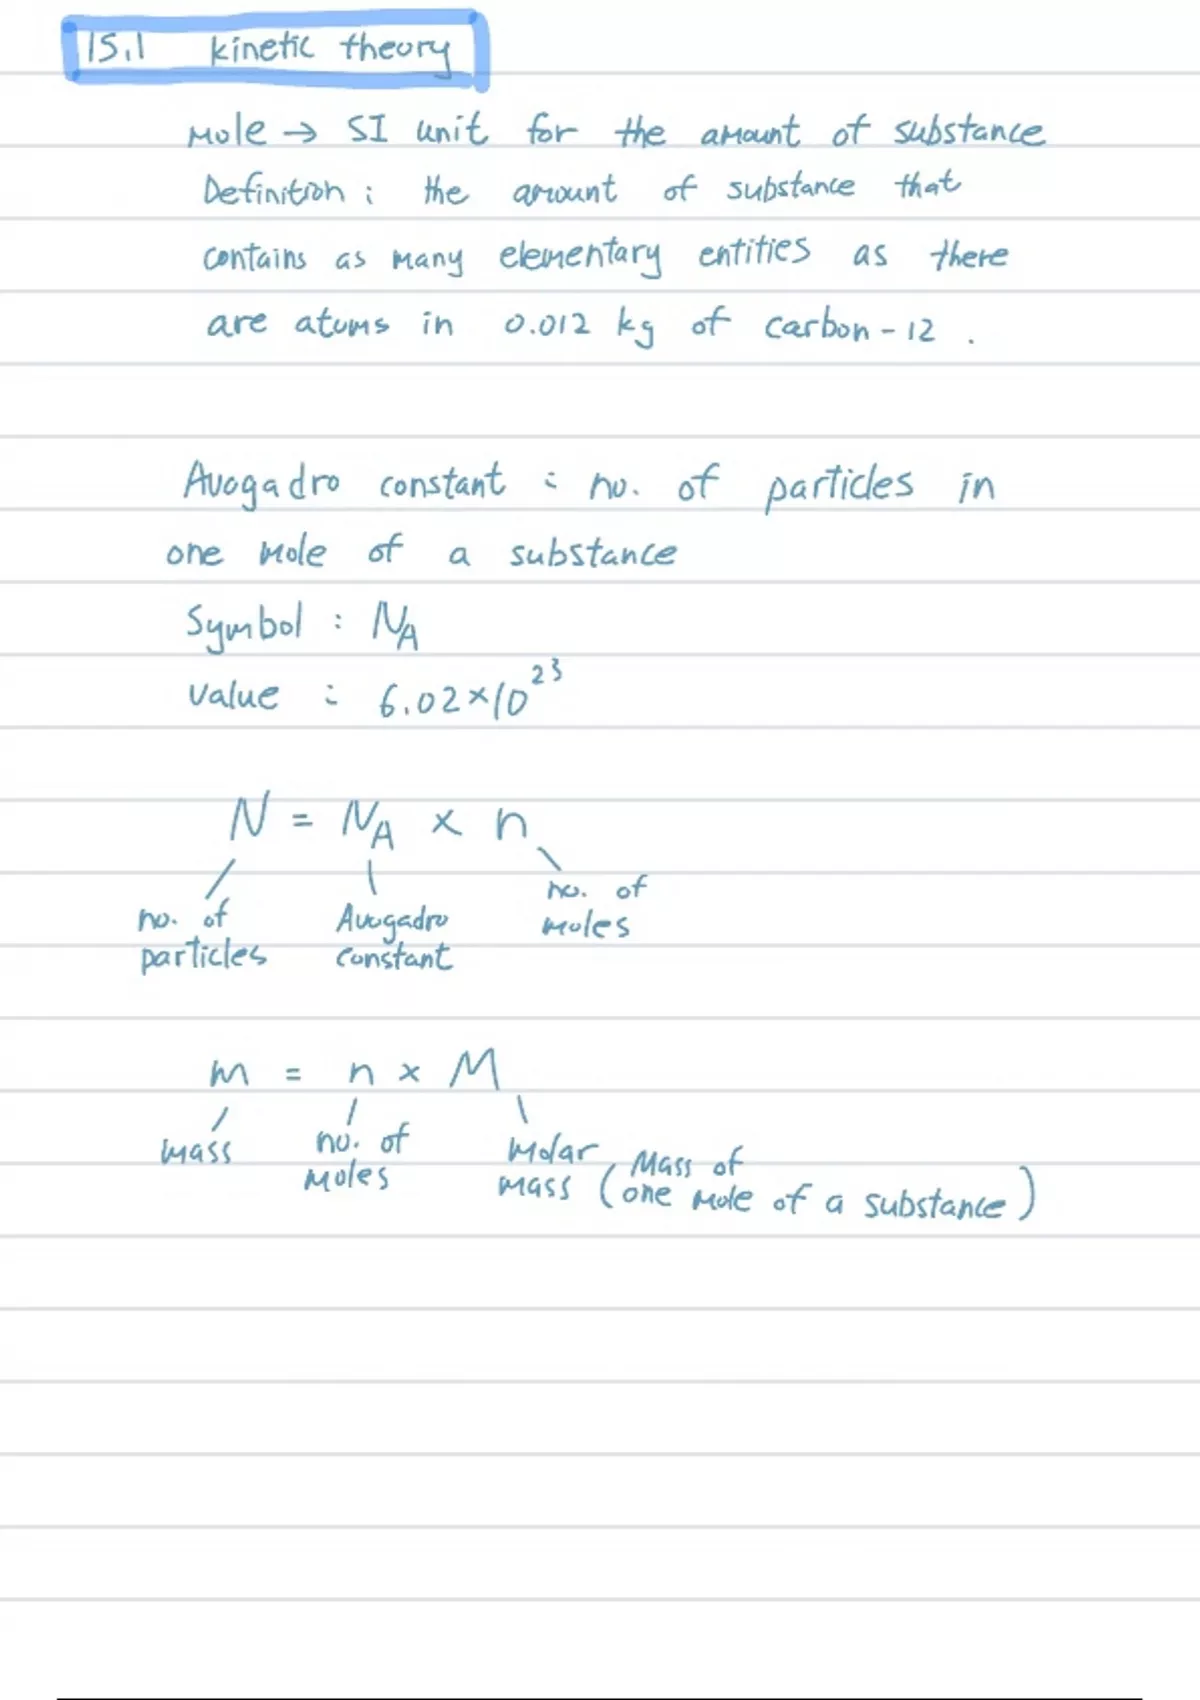 15.1 kinetic theory
Mole → SI unit for the amount of substance
Definition : the amount of substance that
contains as many elementary entities as there
are atoms in 0.012 kg of carbon-12 .
Avogadro constant : no. of particles in
one mole of a substance
Symbol : N_A
value : 6.02×10^23
N = N_A × n
no. of particles
Avogadro constant
no. of moles
m = n × M
mass
no. of moles
Molar mass (Mass of one mole of a substance)